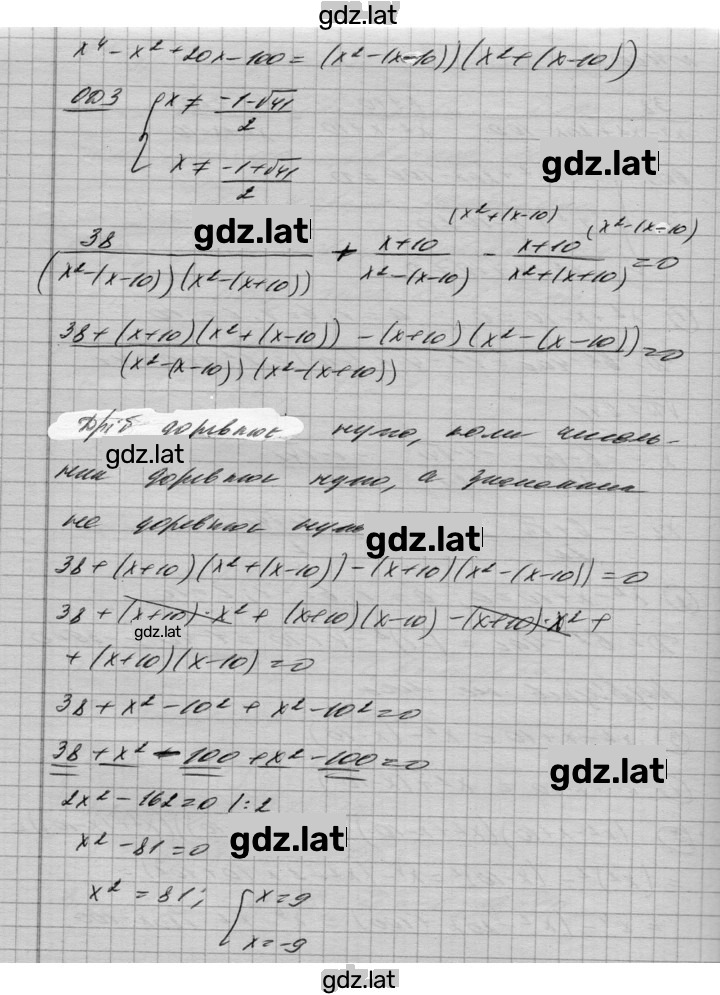 gdz.lat
x⁴ - x² + 20x - 100 = (x² - (x-10))(x² + (x-10))
ОДЗ { x ≠ (-1-√41)/2
x ≠ (-1+√41)/2
gdz.lat
gdz.lat
38/((x²-(x-10))(x²-(x+10))) + (x+10)/(x²-(x-10)) (x²+(x-10) - (x+10)/(x²+(x+10)) (x²-(x-10) = 0
(38+(x+10)(x²+(x-10)) - (x+10)(x²-(x-10)))/((x²-(x-10))(x²-(x+10))) = 0
Дріб дорівнює нулю, коли чисель-
gdz.lat
ник дорівнює нулю, а знаменник
не дорівнює нулю
gdz.lat
38+(x+10)(x²+(x-10)) - (x+10)(x²-(x-10)) = 0
38+(x+10)·x² + (x+10)(x-10) - (x+10)·x² +
gdz.lat
+ (x+10)(x-10) = 0
38 + x² - 10² + x² - 10² = 0
38 + x² - 100 + x² - 100 = 0
gdz.lat
2x² - 162 = 0 | : 2
x² - 81 = 0
gdz.lat
x² = 81; { x = 9
x = -9
gdz.lat